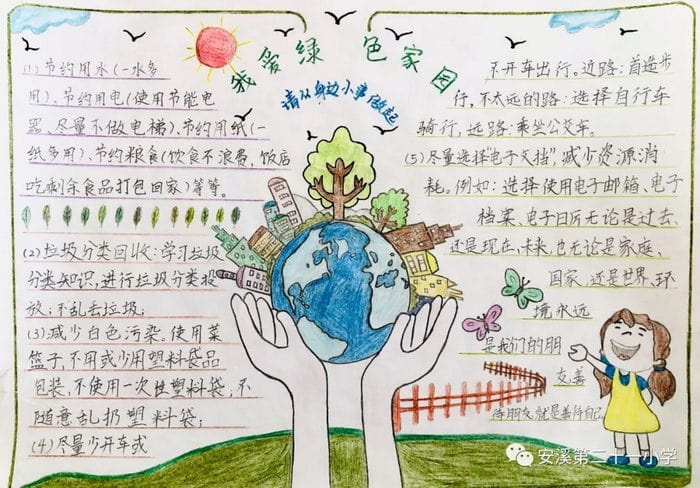 我爱绿色家园
请从身边小事做起
(1) 节约用水(一水多
用)、节约用电(使用节能电
器、尽量不做电梯)、节约用纸(一
纸多用)、节约粮食(饮食不浪费，饭店
吃剩余食品打包回家)等等。
(2) 垃圾分类回收：学习垃圾
分类知识，进行垃圾分类投
放；不乱丢垃圾；
(3) 减少白色污染。使用菜
篮子，不用或少用塑料袋品
包装，不使用一次性塑料袋，不
随意乱扔塑料袋；
(4) 尽量少开车或
不开车出行，近路：首选步
行，不太远的路：选择自行车
骑行，远路：乘坐公交车。
(5) 尽量选择“电子文档”，减少资源消
耗。例如：选择使用电子邮箱、电子
档案、电子日历无论是过去、
还是现在、未来，也无论是家庭、
国家、还是世界、环
境永远
是我们的朋
友，善
待朋友就是善待自己
安溪第二十一小学